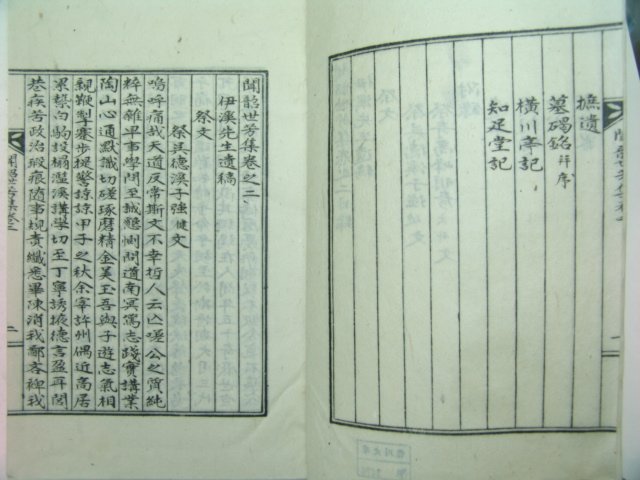 摭遺
墓碣銘 幷序
橫川亭記
知足堂記
聞韶世芳集卷之二
伊溪先生遺稿
祭文
祭吳德溪子強健文
嗚呼痛哉天道反常斯文不幸哲人云亡嗟公之質純
粹無雜早事學問至誠懇惻問道南冥篤志踐實講業
陶山心通默識切磋琢磨精金美玉吾與子遊志氣相
親鞭犁寨步提警諒諒甲子之秋余宰許州偶近高居
累檠向駒設榻濫溪講學切至丁寧誘掖德言盈耳閭
巷疾苦政治瑕痕隨事規責纖悉畢陳消我鄙吝裨我
聞韶世芳集卷二
二